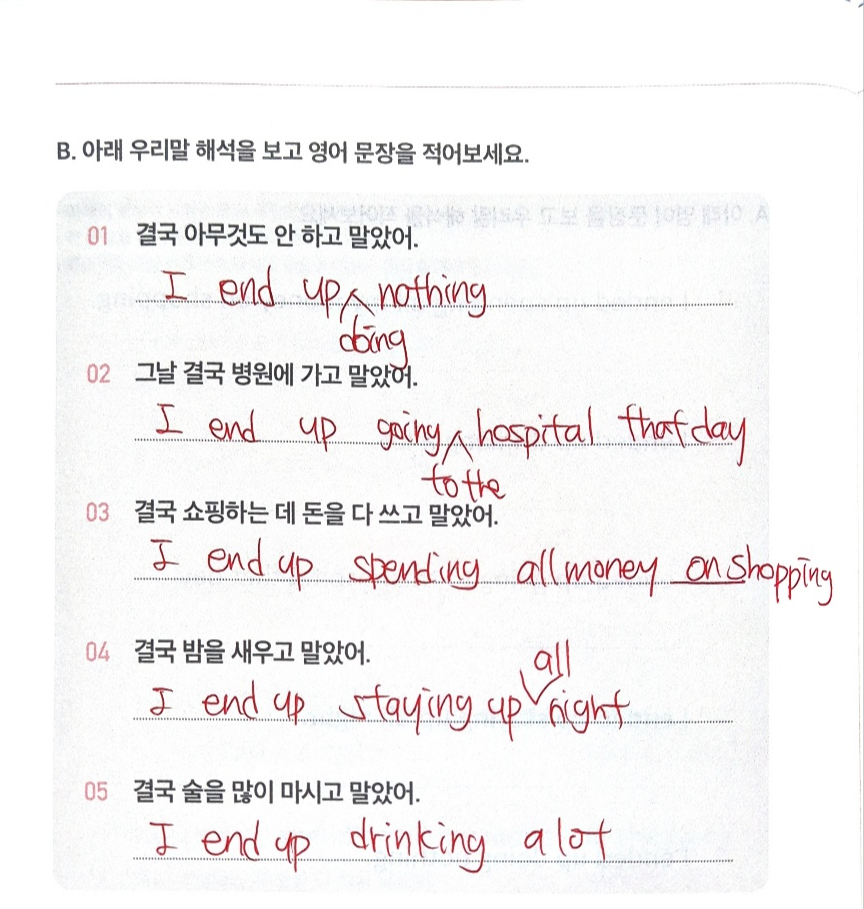 B. 아래 우리말 해석을 보고 영어 문장을 적어보세요.
A. 아래 영어 문장을 보고 우리말 해석을 적어보세요.
01 결국 아무것도 안 하고 말았어.
I end up doing nothing
02 그날 결국 병원에 가고 말았어.
I end up going to the hospital that day
03 결국 쇼핑하는 데 돈을 다 쓰고 말았어.
I end up spending all money on shopping
04 결국 밤을 새우고 말았어.
I end up staying up all night
05 결국 술을 많이 마시고 말았어.
I end up drinking a lot